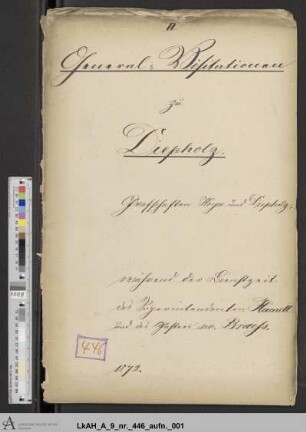 II
General-Visitationen
zu
Diepholz.
Grafschaften Hoya und Diepholz,
während der Dienstzeit
des Superintendenten
und des Pastors
446
1879.
LkAH_A_9_nr._446_aufn._001